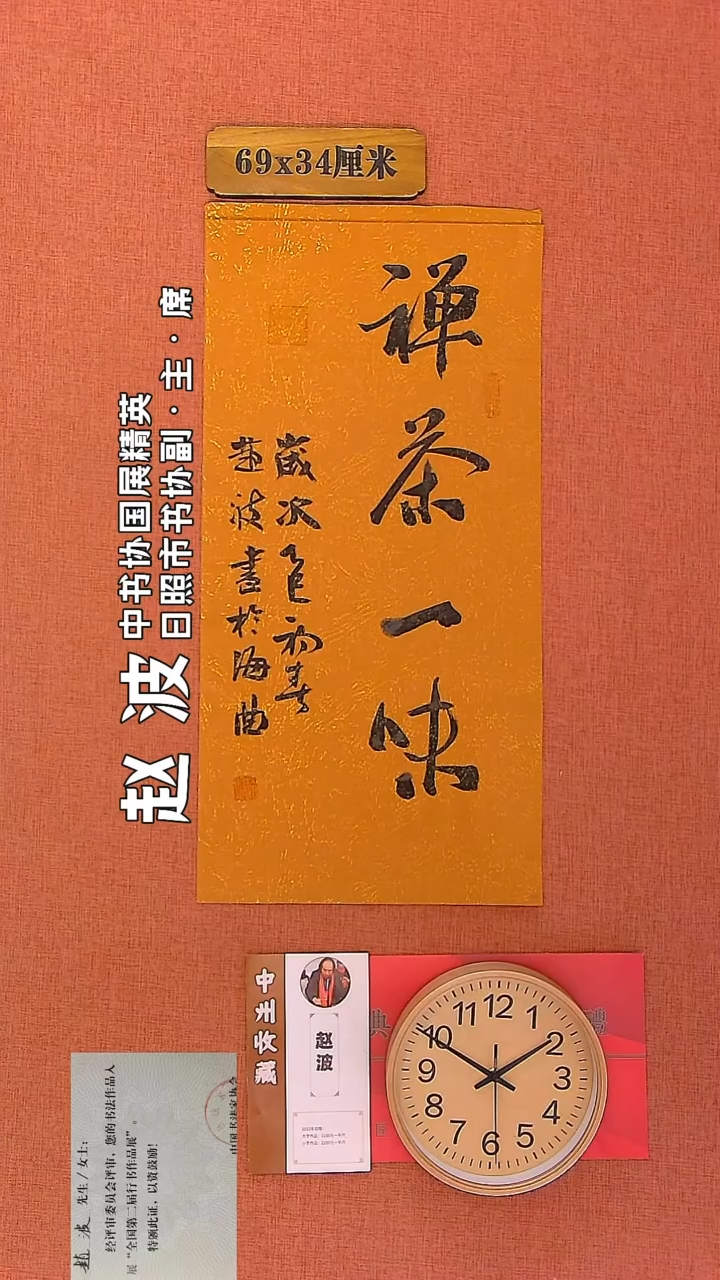 69x34厘米
禅茶一味
歲次乙巳初春
赵波書於海曲
赵波
中书协国展精英
日照市书协副·主·席
中
藏
赵波
典
禮
12
1
2
3
4
5
6
7
8
9
10
11
趙波 先生/女士:
经评审委员会评审，您的书法作品入
展“全国第二届行书作品展”。
特颁此证，以资鼓励!